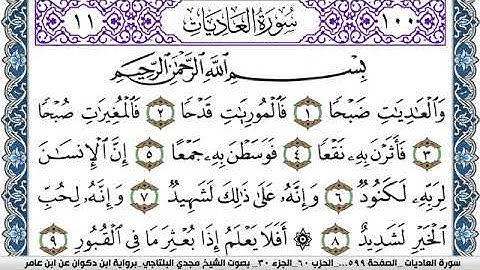 ١١ سُورَةُ الْعَادِيَاتِ ١٠٠
بِسْمِ اللَّهِ الرَّحْمَٰنِ الرَّحِيمِ
وَالْعَادِيَاتِ ضَبْحًا ١ فَالْمُورِيَاتِ قَدْحًا ٢ فَالْمُغِيرَاتِ صُبْحًا
٣ فَأَثَرْنَ بِهِ نَقْعًا ٤ فَوَسَطْنَ بِهِ جَمْعًا ٥ إِنَّ الْإِنْسَانَ
لِرَبِّهِ لَكَنُودٌ ٦ وَإِنَّهُ عَلَىٰ ذَالِكَ لَشَهِيدٌ ٧ وَإِنَّهُ لِحُبِّ
الْخَيْرِ لَشَدِيدٌ ٨ أَفَلَا يَعْلَمُ إِذَا بُعْثِرَ مَا فِي الْقُبُورِ ٩
سورة العاديات _الصفحة ٥٩٩...الحزب ٦٠_الجزء ٣٠_ بصوت الشيخ مجدي البلتاجي_برواية ابن ذكوان عن ابن عامر